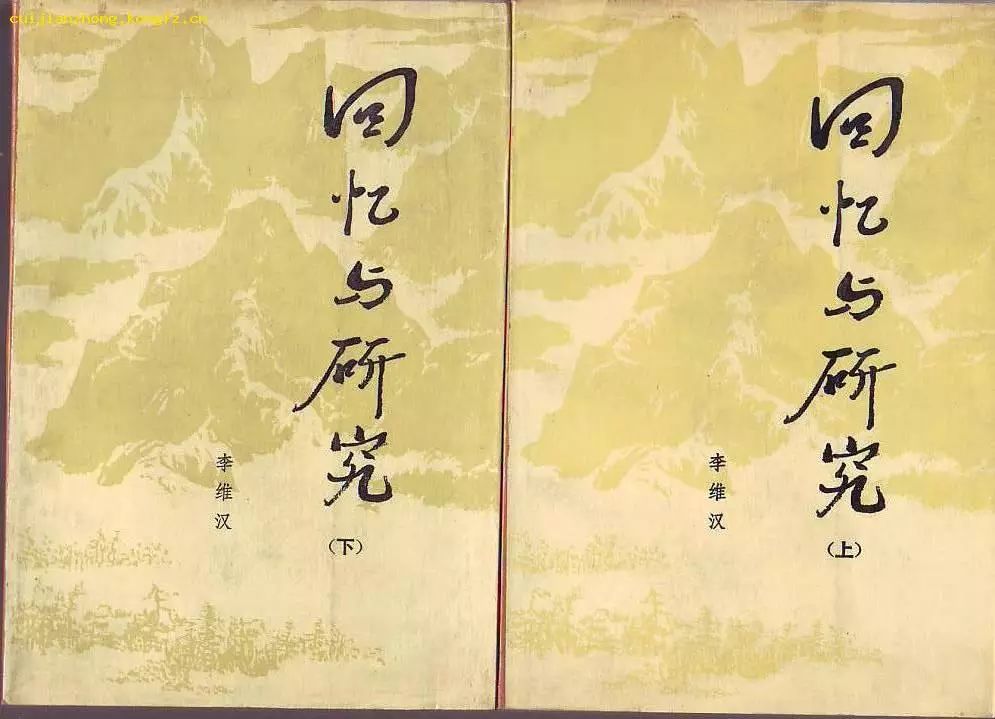 cuijianzhong.kongfz.cn
回忆与研究
李维汉
(下)
回忆与研究
李维汉
(上)